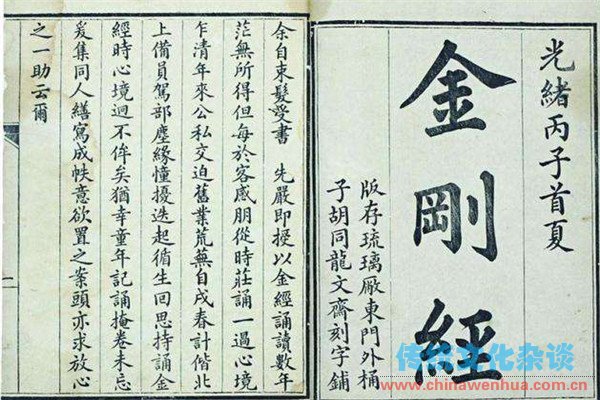 光緒丙子首夏
金剛經
版存琉璃厰東門外桶
子胡同龍文齋刻字鋪
余自束髮受書　先嚴即授以金經誦讀數年
茫無所得但每於客感朋從時莊誦一過心境
乍清年來公私交迫舊業荒蕪自戌春計偕北
上備員駕部塵緣憧擾迭起循生回思持誦金
經時心境迥不侔矣猶幸童年記誦掩卷未忘
爰集同人繕寫成帙意欲置之案頭亦求放心
之一助云爾
传统文化杂谈
www.chinawenhua.com.cn